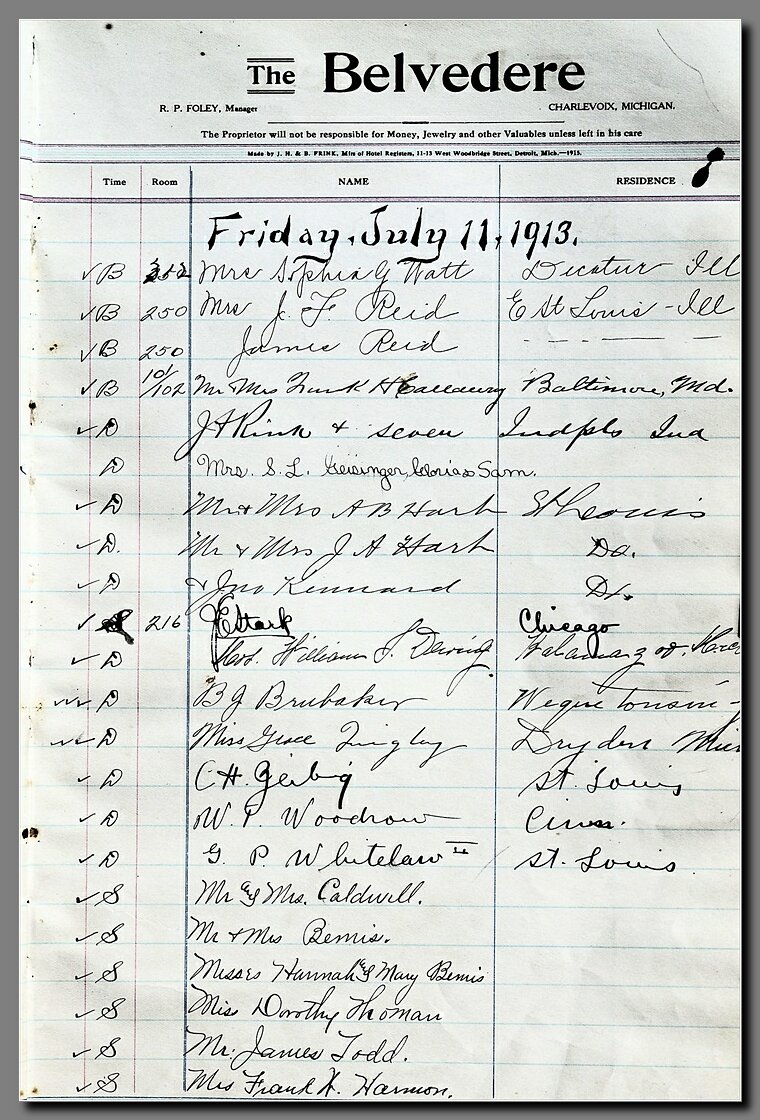 The Belvedere
R. P. FOLEY, Manager CHARLEVOIX, MICHIGAN.
The Proprietor will not be responsible for Money, Jewelry and other Valuables unless left in his care
Made by J. H. & B. FRINK, Mfrs of Hotel Registers, 11-13 West Woodbridge Street, Detroit, Mich.—1915.
Time Room NAME RESIDENCE
Friday, July 11, 1913.
✓ B Mrs Sophia G Watt Decatur Ill
✓ B 250 Mrs J. F. Reid E St Louis - Ill
✓ B 250 James Reid
✓ B 101/102 Mr Mrs Frank H Callaway Baltimore, Md.
✓ D J H Rink + seven Indpls Ind
D Mrs. S. L. Geisinger, & Sam.
✓ D Mr & Mrs A B Hart St Louis
✓ D. Mr & Mrs J A Hart Do.
✓ D & Jno Kennard Do.
✓ 216 J E Stark Chicago
✓ D William S. Dewing
D B J Brubaker
D Miss Grace Dryden Mich
✓ D C H. Gerbig St. Louis
✓ D W. P. Woodrow Cinn.
✓ D G. P. Whitelaw II St. Louis
✓ S Mr & Mrs. Caldwell.
✓ S Mr & Mrs Bemis.
✓ S Misses Hannah & Mary Bemis
✓ S Miss Dorothy Thoman
✓ S Mr. James Todd.
✓ S Mrs Frank W. Harmon.